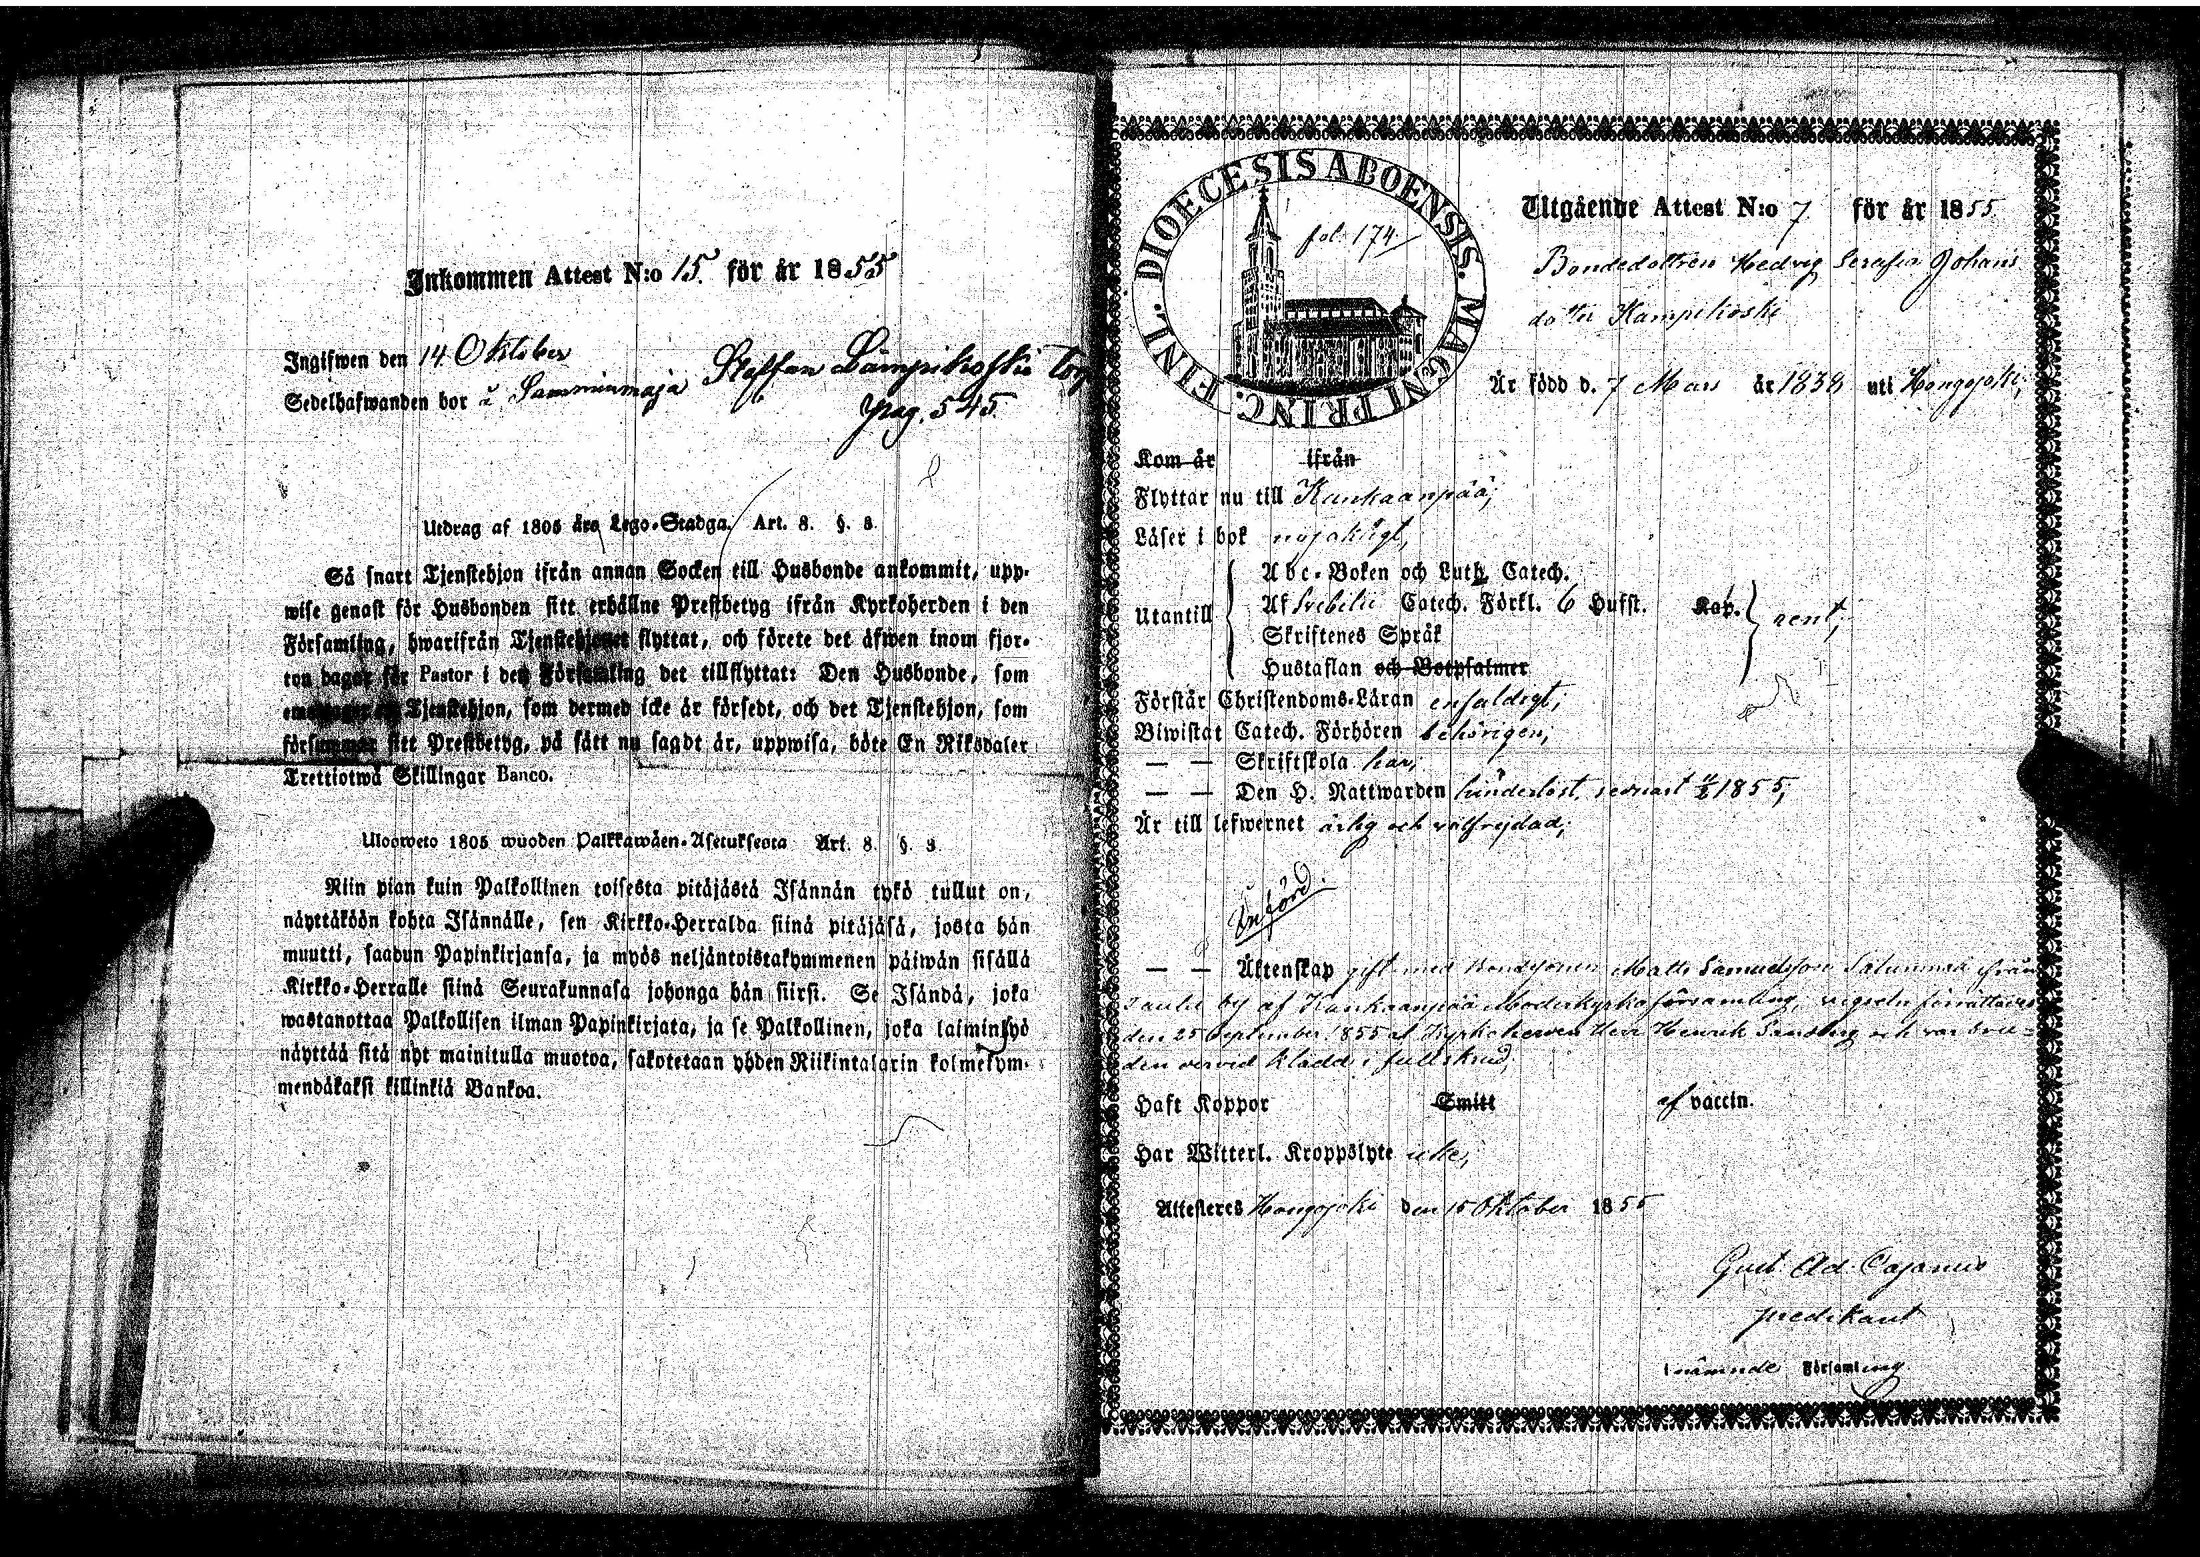 Inkommen Attest N:o 15. för år 1855
Ingifwen den 14 Oktober
Sedelhafwanden bor å Samminmaja Staffan Lämpikoski torp
pag. 545.
Utdrag af 1805 års Lego-Stadga. Art. 8. §. 8.
Så snart Tjenstehjon ifrån annan Socken till Husbonde ankommit, upp-
wise genast för Husbonden sitt erhållne Prestbetyg ifrån Kyrkoherden i den
Församling, hwarifrån Tjenstehjonet flyttat, och förete det äfwen inom fjor-
ton dagar för Pastor i den Församling det tillflyttat: Den Husbonde, som
emottager ett Tjenstehjon, som dermed icke är försedt, och det Tjenstehjon, som
försummar sitt Prestbetyg, på sätt nu sagdt är, uppwisa, böte En Riksdaler
Trettiotwå Skillingar Banco.
Uloosweto 1805 wuoden Palkkawäen-Asetuksesta Art. 8. §. 8.
Niin pian kuin Palkollinen toisesta pitäjästä Isännän tykö tullut on,
näyttäköön kohta Isännälle, sen Kirkko-Herralda siinä pitäjäsä, josta hän
muutti, saadun Papinkirjansa, ja myös neljäntoistakymmenen päiwän sisällä
Kirkko-Herralle siinä Seurakunnasa johonga hän siirsi. Se Isändä, joka
wastanottaa Palkollisen ilman Papinkirjata, ja se Palkollinen, joka laiminlyö
näyttää sitä nyt mainitulla muotoa, sakotetaan yhden Riikintalarin kolmekym-
mendäkaksi killinkiä Bankoa.
DIOECESIS ABOENSIS. MAGNI PRINC. FINL.
fol. 174
Utgående Attest N:o 7 för år 1855.
Bondedottren Hedvig Serafia Johans
dotter Kampikoski
Är född d. 7 Mars år 1838 uti Hongojoki,
Kom år ifrån
Flyttar nu till Kankaanpää,
Läser i bok nöjaktigt,
Utantill
Abc-Boken och Luth. Catech.
Af Svebilii Catech. Förkl. 6 Hufst. Kap.
Skriftenes Språk
Hustaflan och Botpsalmer
rent,
Förstår Christendoms-Läran enfaldigt,
Biwistat Catech. Förhören behörigen,
— — Skriftskola har,
— — Den H. Nattwarden hinderlöst, senast 1855,
Är till lefwernet ärlig och välfrejdad,
Införd.
— — Äktenskap gift med Bondsonen Matts Samuelsson ifrån
by af Kankaanpää Moderkyrkoförsamling, vigseln förrättades
den 25 September 1855 af Kyrkoherden Herr Henrik Sandberg och var bru-
den dervid klädd i full skrud,
Haft Koppor Smitt af vaccin.
Har Witterl. Kroppslyte icke,
Attesteres Hongojoki den 15 Oktober 1855
Gust. Ad. Cajanus
predikant
i nämnde Församling